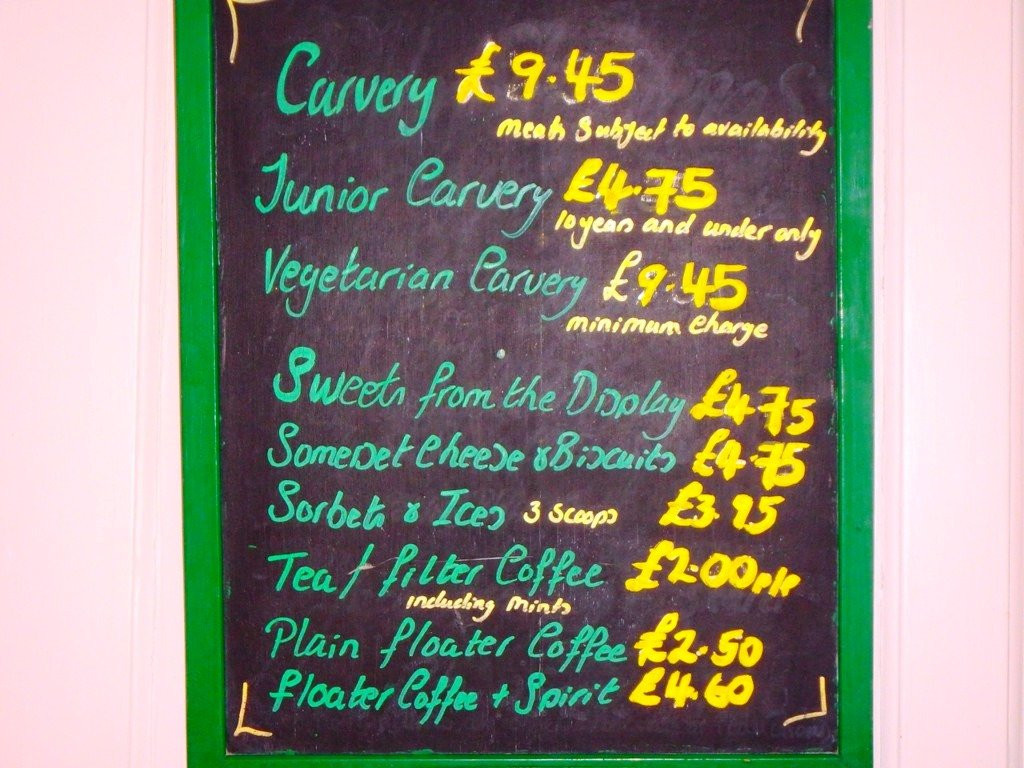 Carvery £9.45
meats subject to availability
Junior Carvery £4.75
10 years and under only
Vegetarian Carvery £9.45
minimum charge
Sweets from the Display £4.75
Somerset Cheese & Biscuits £4.75
Sorbets & Ices 3 scoops £3.95
Tea / filter Coffee £2.00
including mints
Plain floater Coffee £2.50
floater Coffee + Spirit £4.60